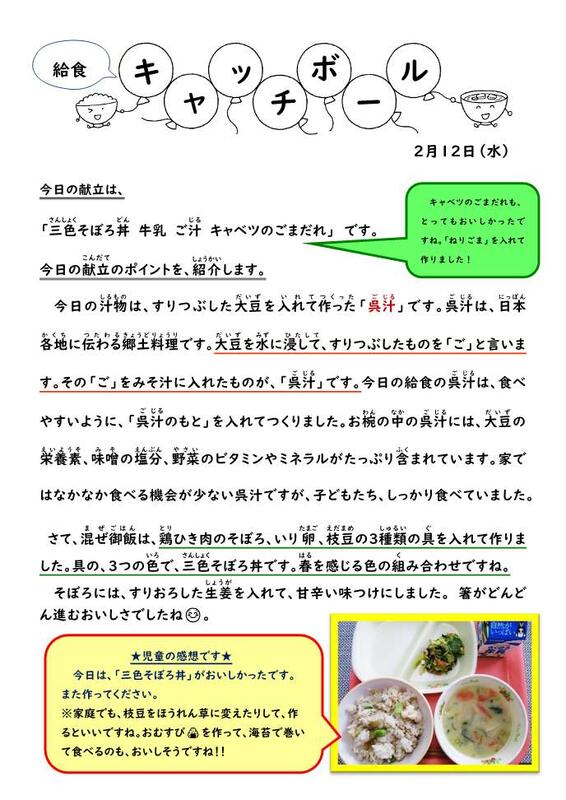 給食
キャッチボール
2月12日(水)
今日の献立は、
「三色そぼろ丼 牛乳 ご汁 キャベツのごまだれ」 です。
キャベツのごまだれも、
とってもおいしかったで
すね。「ねりごま」を入れて
作りました!
今日の献立のポイントを、紹介します。
今日の汁物は、すりつぶした大豆を入れて作った「呉汁」です。呉汁は、日本
各地に伝わる郷土料理です。大豆を水に浸して、すりつぶしたものを「ご」と言いま
す。その「ご」をみそ汁に入れたものが、「呉汁」です。今日の給食の呉汁は、食べ
やすいように、「呉汁のもと」を入れてつくりました。お椀の中の呉汁には、大豆の
栄養素、味噌の塩分、野菜のビタミンやミネラルがたっぷり含まれています。家で
はなかなか食べる機会が少ない呉汁ですが、子どもたち、しっかり食べていました。
さて、混ぜ御飯は、鶏ひき肉のそぼろ、いり卵、枝豆の3種類の具を入れて作りま
した。具の、3つの色で、三色そぼろ丼です。春を感じる色の組み合わせですね。
そぼろには、すりおろした生姜を入れて、甘辛い味つけにしました。 箸がどんど
ん進むおいしさでしたね😊。
★児童の感想です★
今日は、「三色そぼろ丼」がおいしかったです。
また作ってください。
※家庭でも、枝豆をほうれん草に変えたりして、作
るといいですね。おむすび🍙を作って、海苔で巻い
て食べるのも、おいしそうですね!!